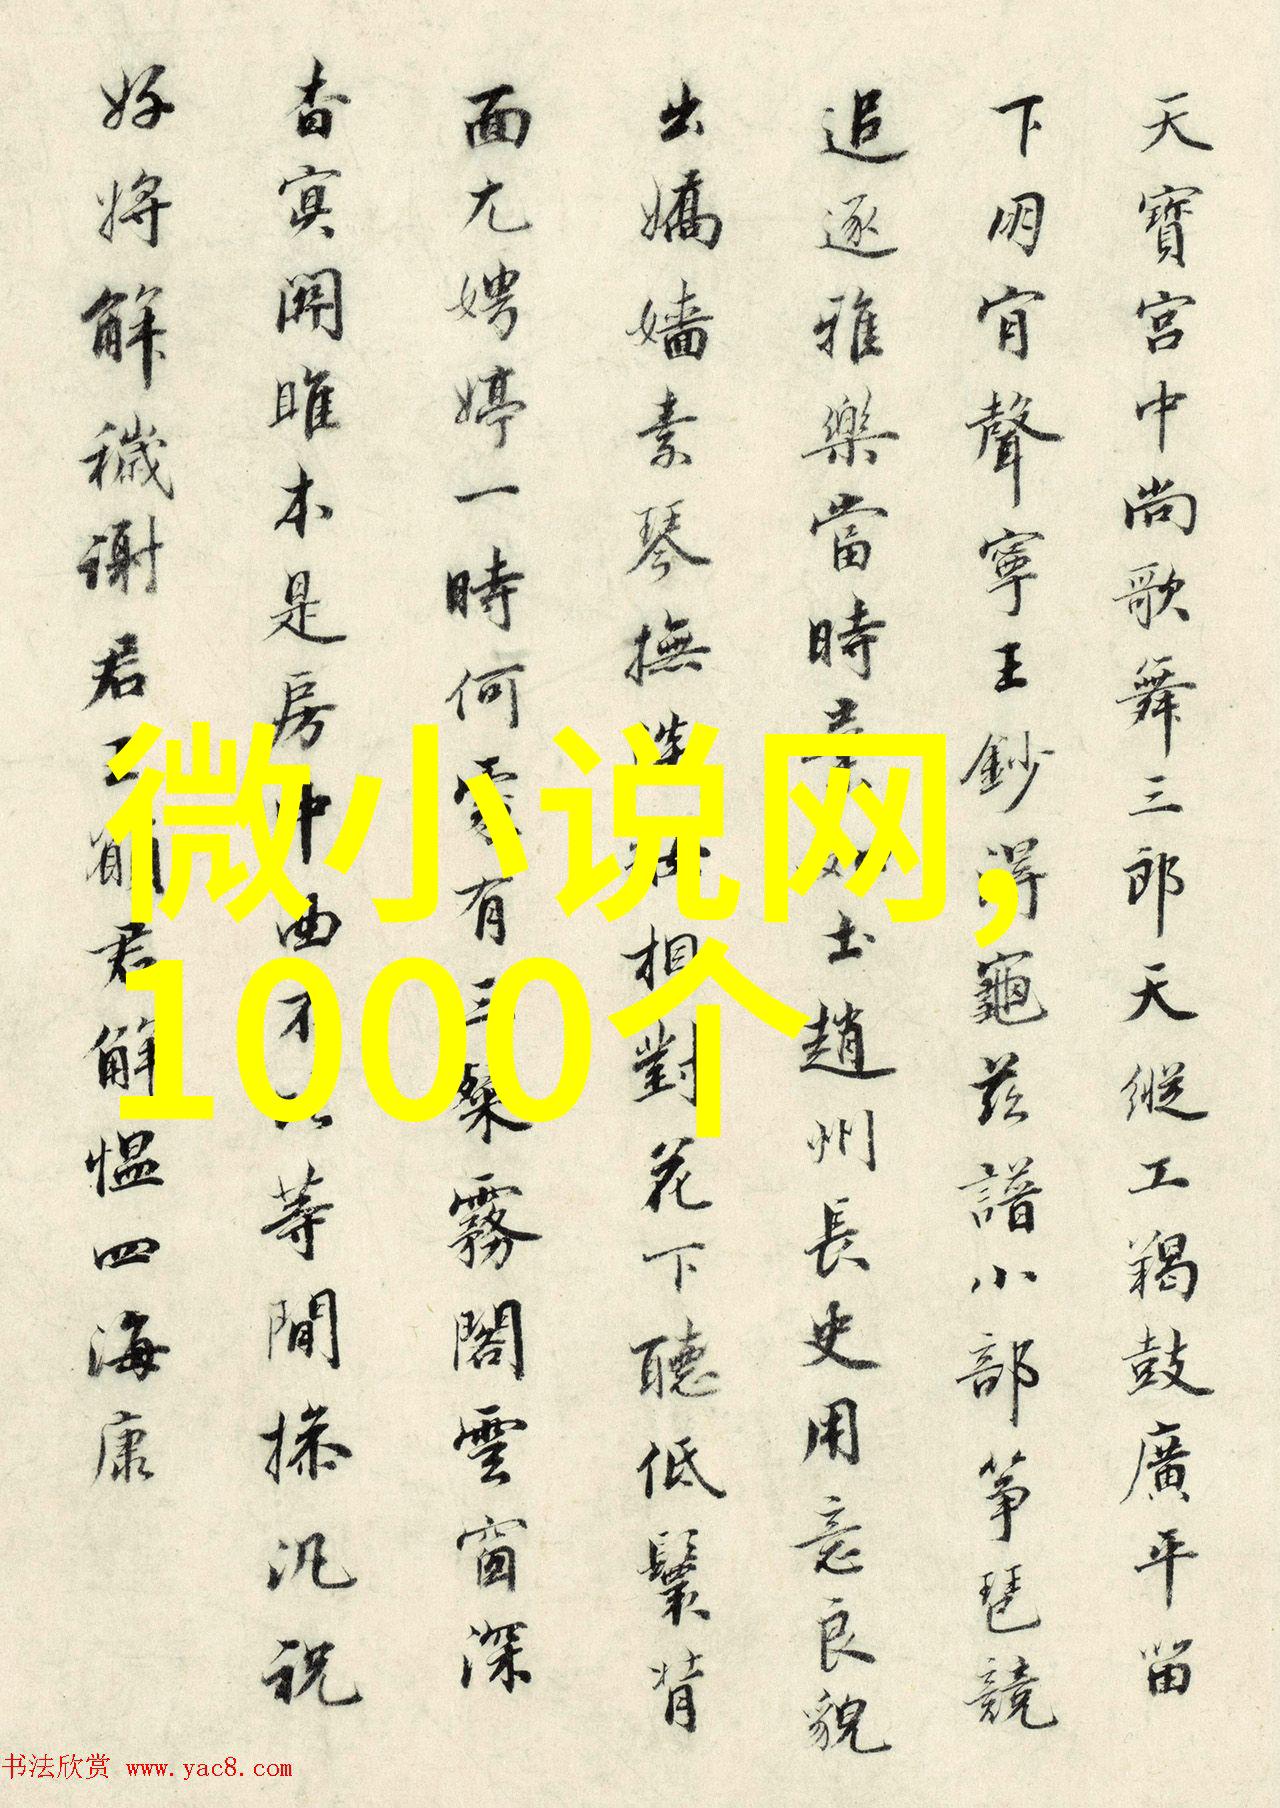 天寶宮中尚歌舞三郎天縱工羯鼓廣平留
下朋肯聲寧王鈔得龜茲譜小部箏琶競
追逐雅樂當時士趙州長史用意良貌
出嬌嬙素琴撫相對花下聽低鬟背
面尤娉婷一時何處有三粲霧閣雲窗深
杳冥關雎本是房中曲不等閒操汎祝
好將解穢謝君王願君解慍四海康
微小说网，
1000个
书法欣赏 www.yac8.com